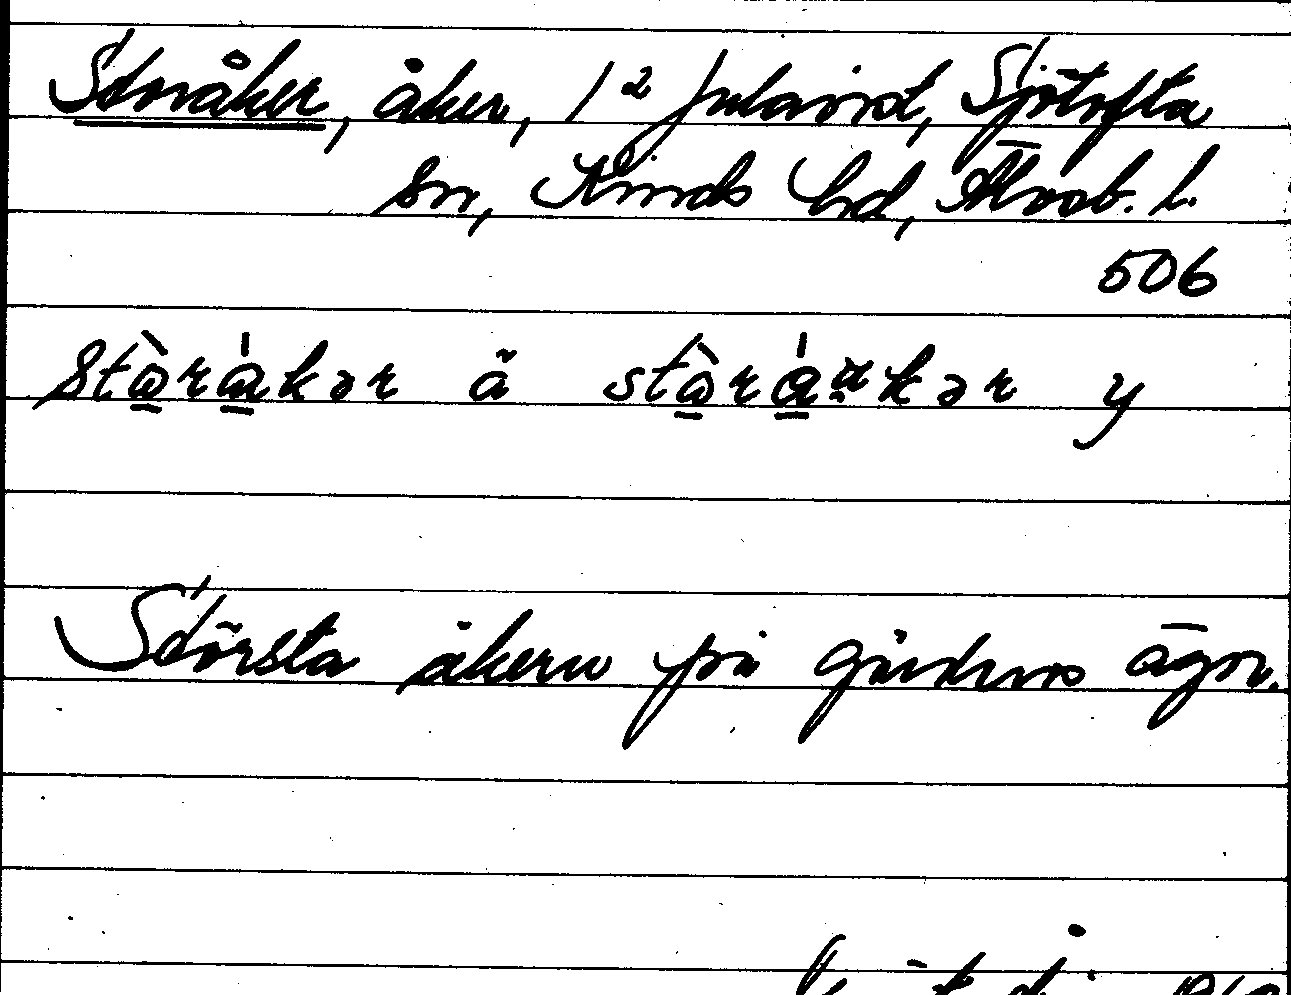 Storåker, åker, 1² Julared, Sjötofta
sn, Kinds hd, Älvsb. l.
506
stòrákər ä stòráukər y
Största åkern på gårdens ägor.